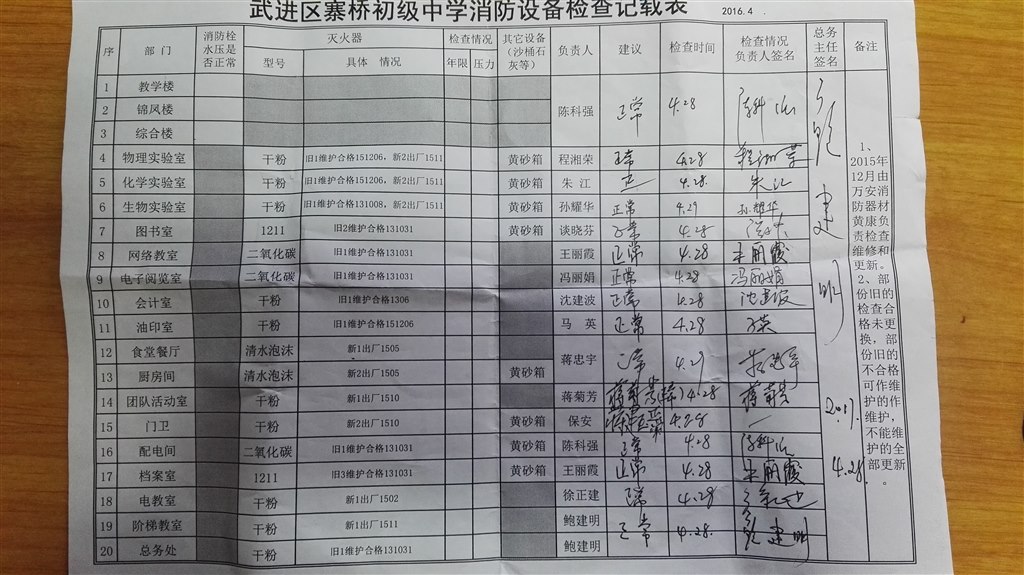 武进区寨桥初级中学消防设备检查记载表
2016.4.
序 部门 消防栓水压是否正常 灭火器 型号 具体 情况 检查情况 年限 压力 其它设备（沙桶石灰等） 负责人 建议 检查时间 检查情况负责人签名 总务主任签名 备注
1 教学楼
2 锦凤楼 陈科强 正常 4.28
3 综合楼
4 物理实验室 干粉 旧1维护合格151206，新2出厂1511 黄砂箱 程湘荣 正常 4.28 程湘荣
5 化学实验室 干粉 旧1维护合格151206，新2出厂1511 黄砂箱 朱江 正 4.28. 朱江
6 生物实验室 干粉 旧1维护合格131008，新2出厂1511 黄砂箱 孙耀华 正常 4.29 孙耀华
7 图书室 1211 旧2维护合格131031 黄砂箱 谈晓芬 正常 4.28
8 网络教室 二氧化碳 旧1维护合格131031 王丽霞 正常 4.28 王丽霞
9 电子阅览室 二氧化碳 旧1维护合格131031 冯丽娟 正常 4.28 冯丽娟
10 会计室 干粉 旧1维护合格1306 沈建波 正常 4.28 沈建波
11 油印室 干粉 旧1维护合格151206 马英 正常 4.28 马英
12 食堂餐厅 清水泡沫 新1出厂1505 蒋忠宇 正常 4.29
13 厨房间 清水泡沫 新2出厂1505 黄砂箱
14 团队活动室 干粉 新1出厂1510 蒋菊芳 4.28 蒋菊芳
15 门卫 干粉 新2出厂1510 黄砂箱 保安 4.28
16 配电间 二氧化碳 旧1维护合格131031 黄砂箱 陈科强 正常 4.8
17 档案室 1211 旧3维护合格131031 黄砂箱 王丽霞 正常 4.28 王丽霞
18 电教室 干粉 新1出厂1502 徐正建 正常 4.28
19 阶梯教室 干粉 新1出厂1511 鲍建明 正常 4.28. 鲍建明
20 总务处 干粉 旧1维护合格131031 鲍建明
鲍建明
4.28.
1、
2015年
12月由
万安消
防器材
黄康负
责检查
维修和
更新。
2、部
份旧的
检查合
格未更
换，部
份旧的
不合格
可作维
护的作
维护，
不能维
护的全
部更新
。